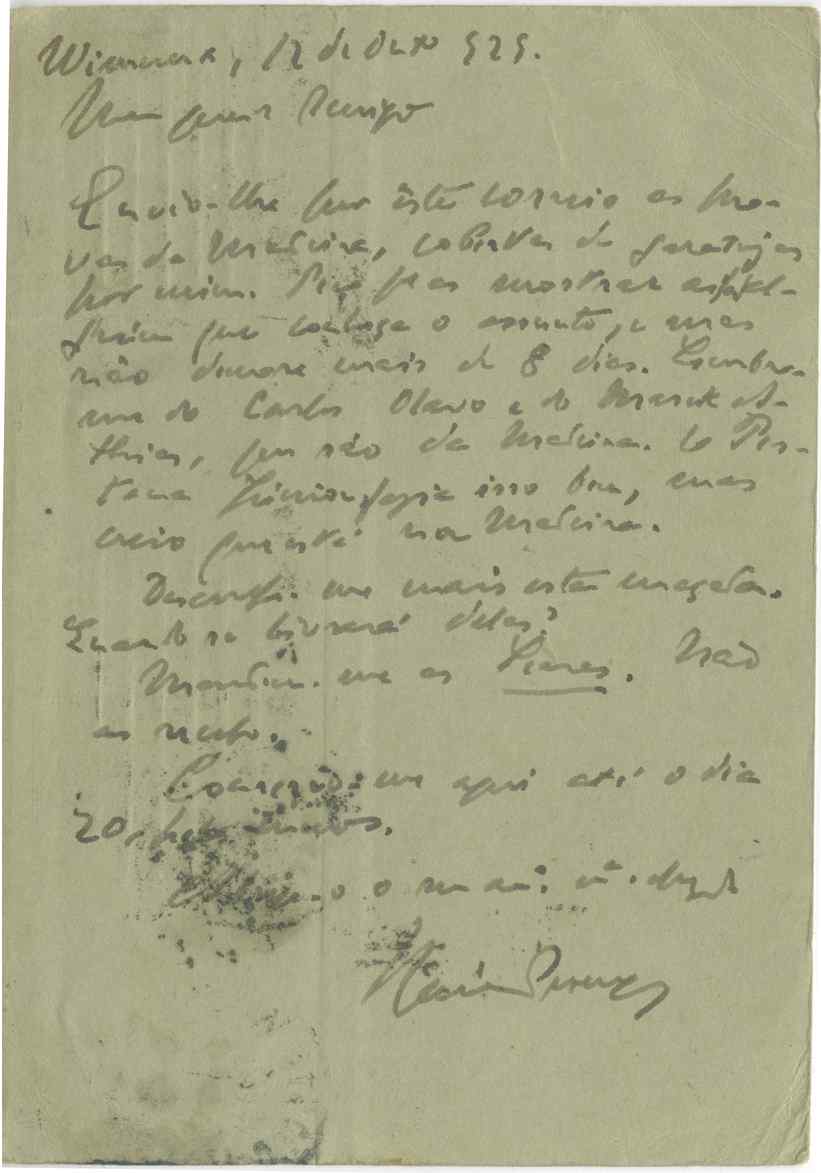 Wimereux, 12 de Outo 929.
Meu querido Amigo
Envio-lhe por êste correio as pro-
vas da Medicina, cobertas de garatujas
por mim. Peço p.ª as mostrar a
que conheça o assunto, e mas
não demore mais de 8 dias. Lembro-
me do Carlos Olavo e do Marck A-
thias, que são da Medicina. O Pes-
tana Júnior fazia isso bem, mas
creio que está na Madeira.
Desculpe-me mais esta maçada.
Quando se livrará delas?
Mandem-me as Searas. Não
as recebo.
me aqui até o dia
20, pelo menos.
o seu am.º m.to obgdº